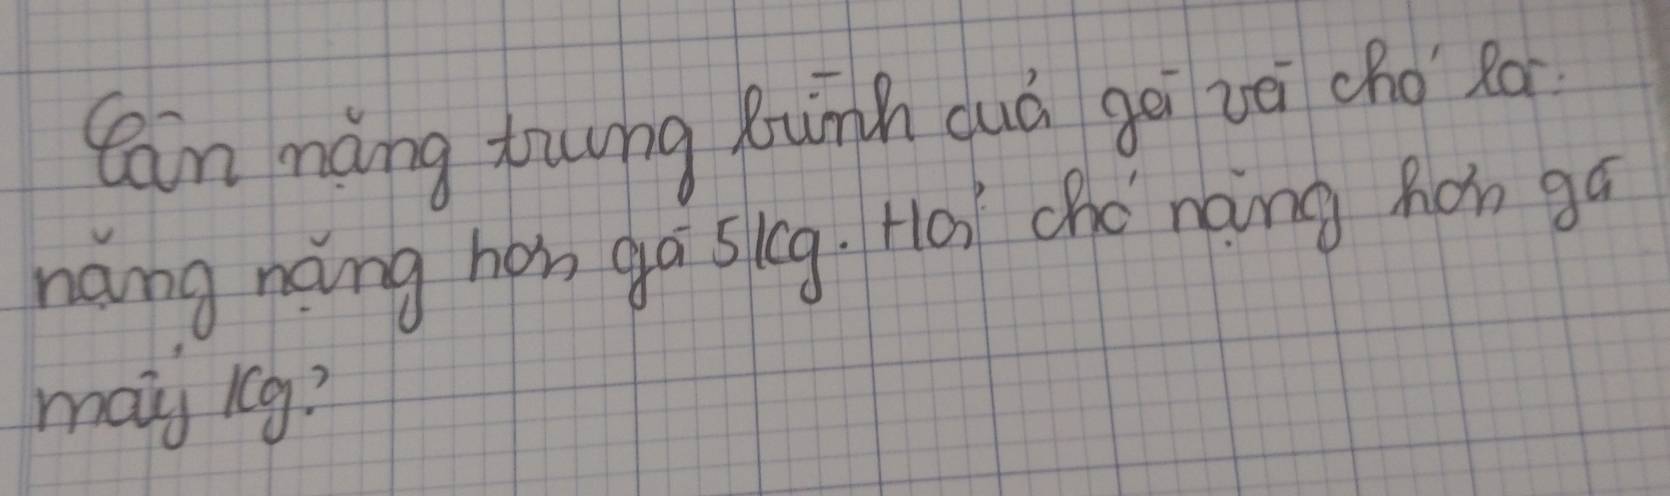 Cân nặng trung bình cuả gà và chó là.
nặng nặng hơn gà 5kg. Hỏi chó nặng hơn gà
mấy kg?